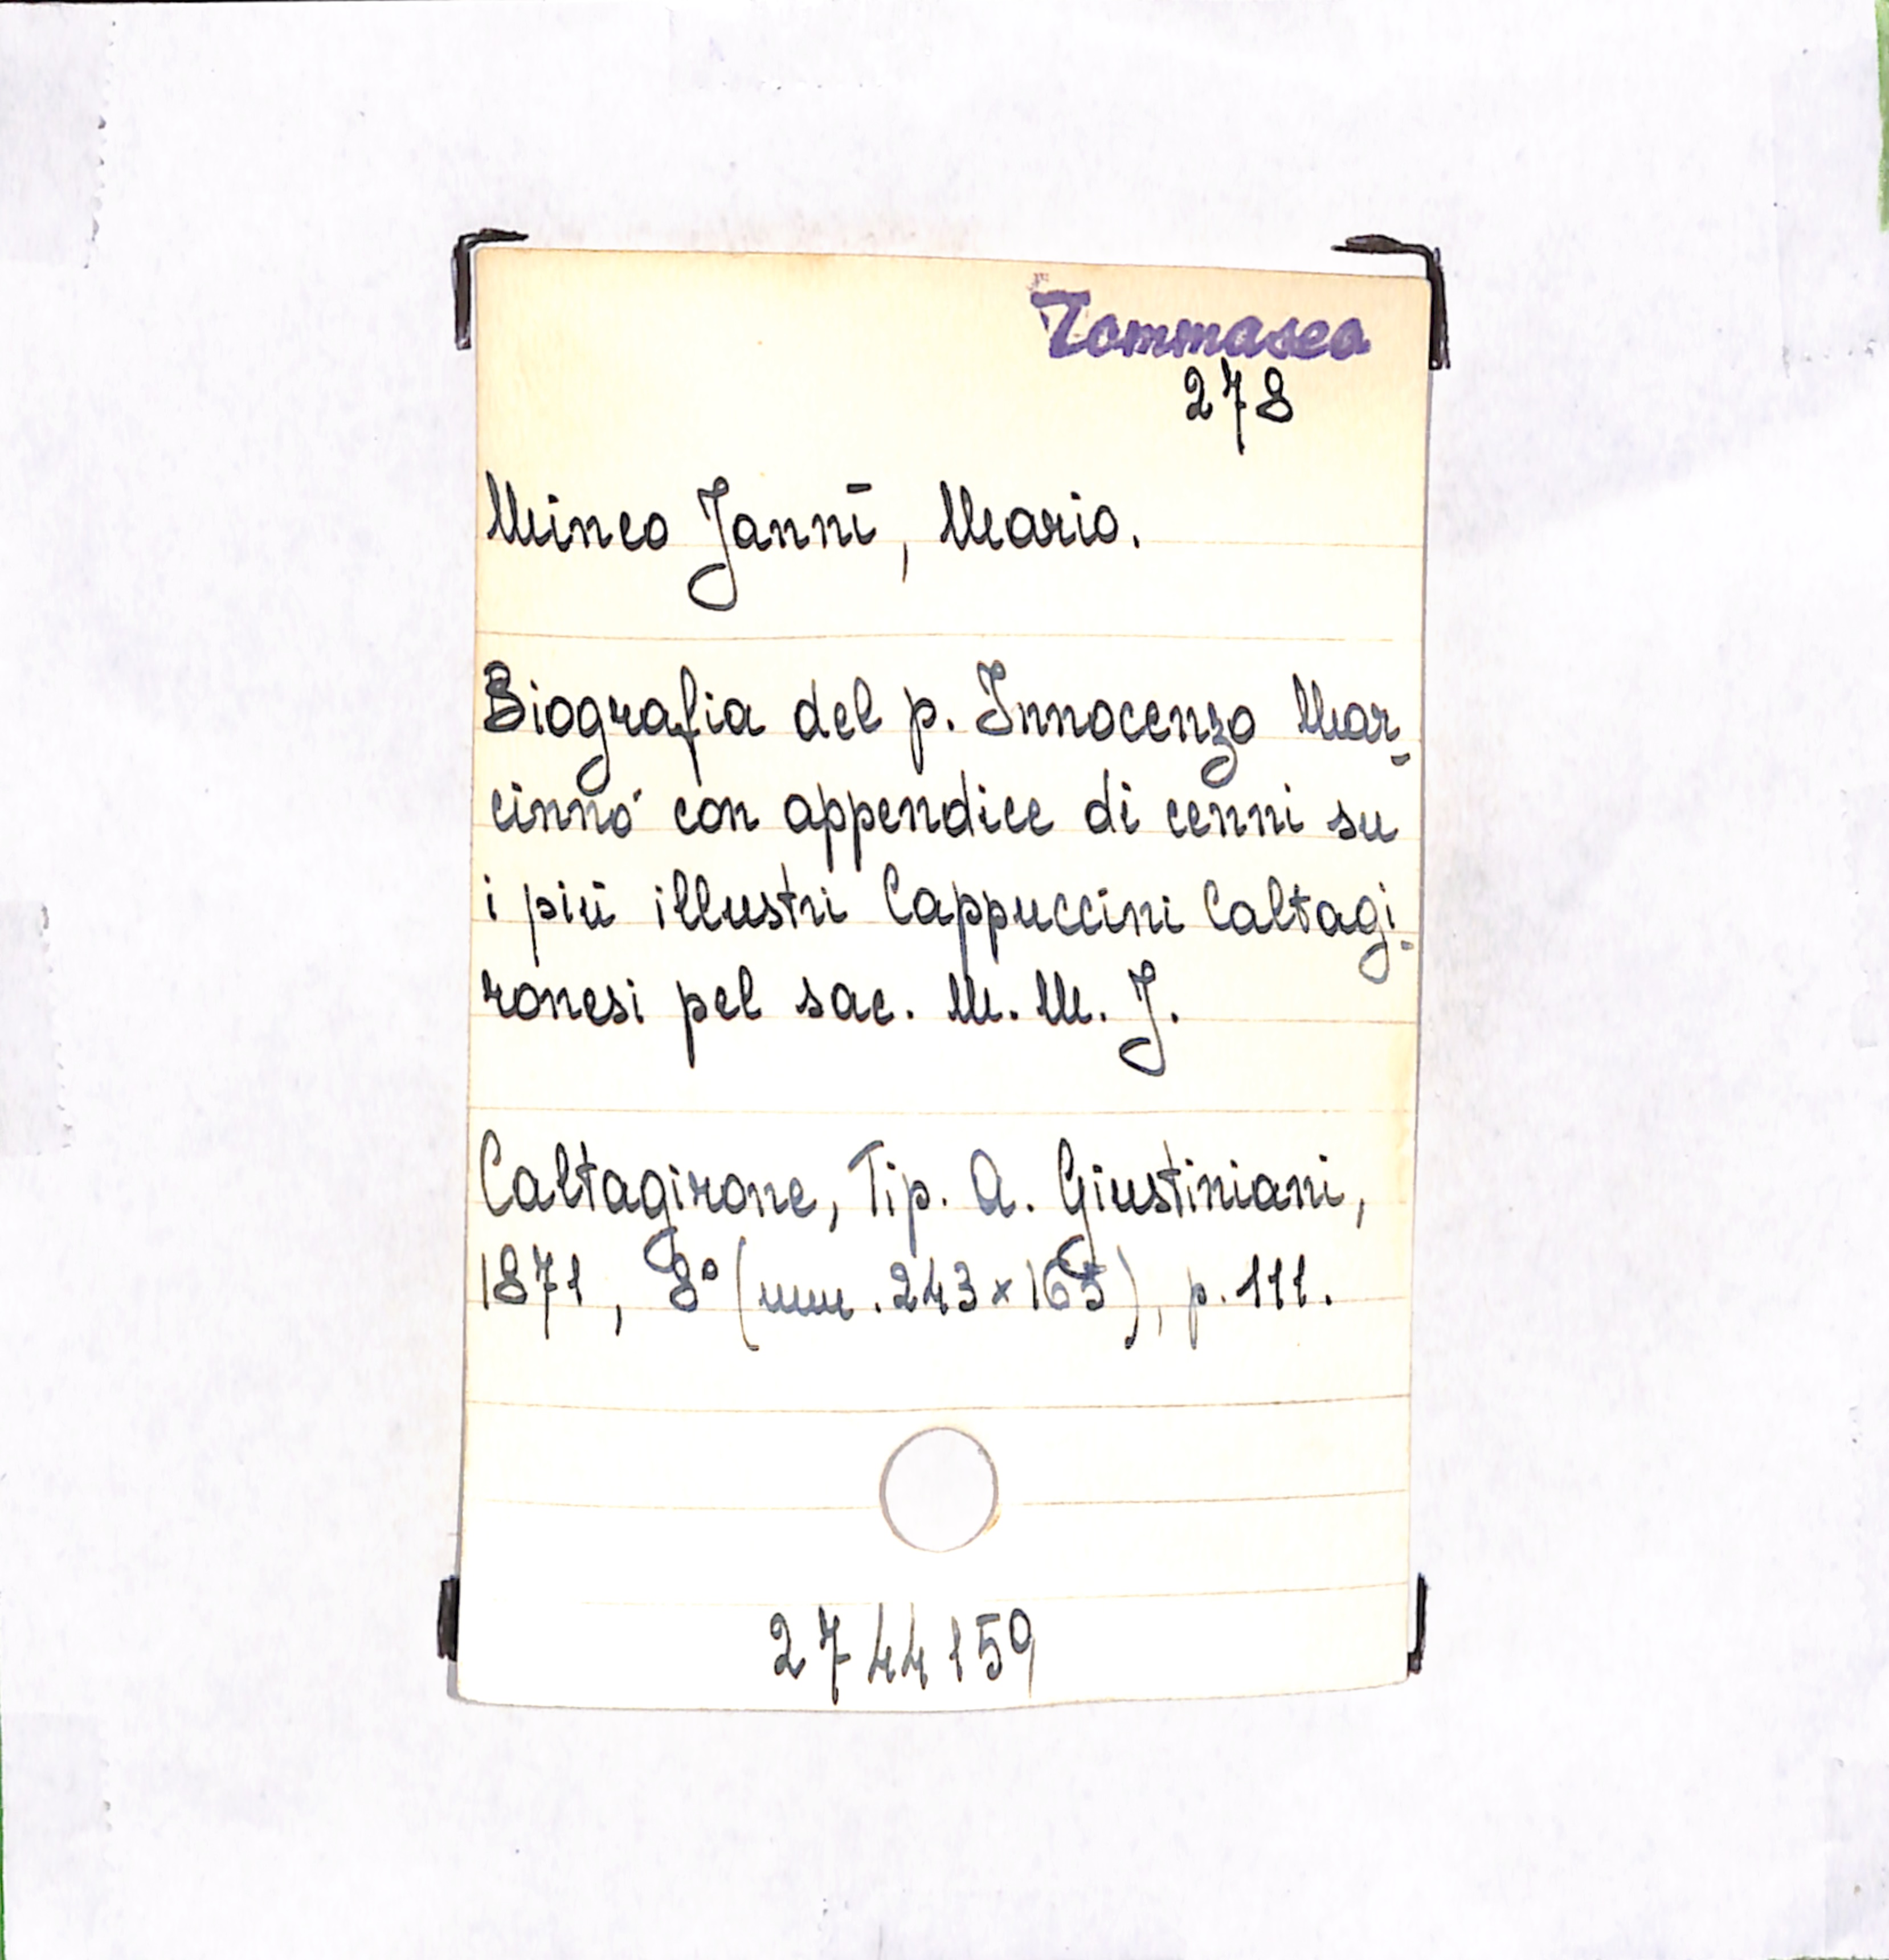 Tommaseo
278
Mineo Jannī, Mario.
Biografia del p. Innocenzo Mar-
cinnó con appendice di cenni su
i piū illustri Cappuccini Caltagi-
ronesi pel sac. M. M. J.
Caltagirone, Tip. A. Giustiniani,
1871, 8° (mm. 243 x 165), p. 111.
2744159